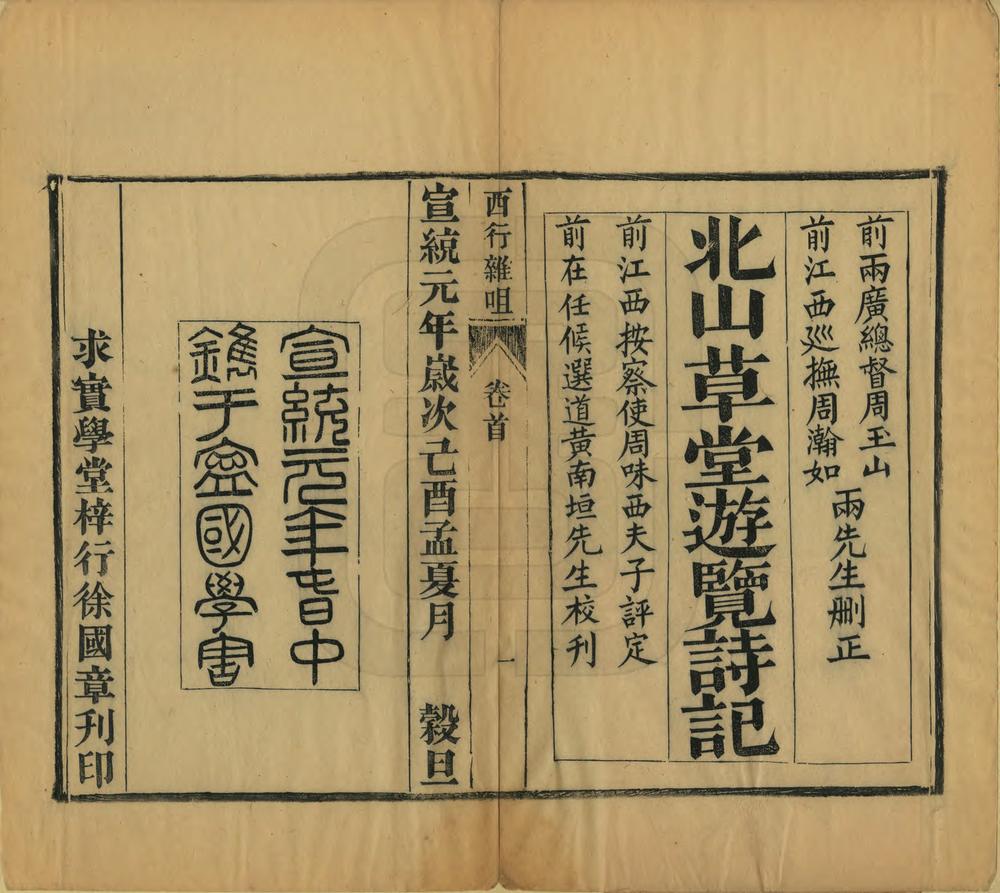 前兩廣總督周玉山
前江西廵撫周瀚如
兩先生刪正
北山草堂遊覽詩記
前江西按察使周味西夫子評定
前在任候選道黃南垣先生校刊
西行雜咀 卷首 一
宣統元年歲次己酉孟夏月 穀旦
宣統元年旹中
鐫于盦國學
求實學堂梓行徐國章刊印